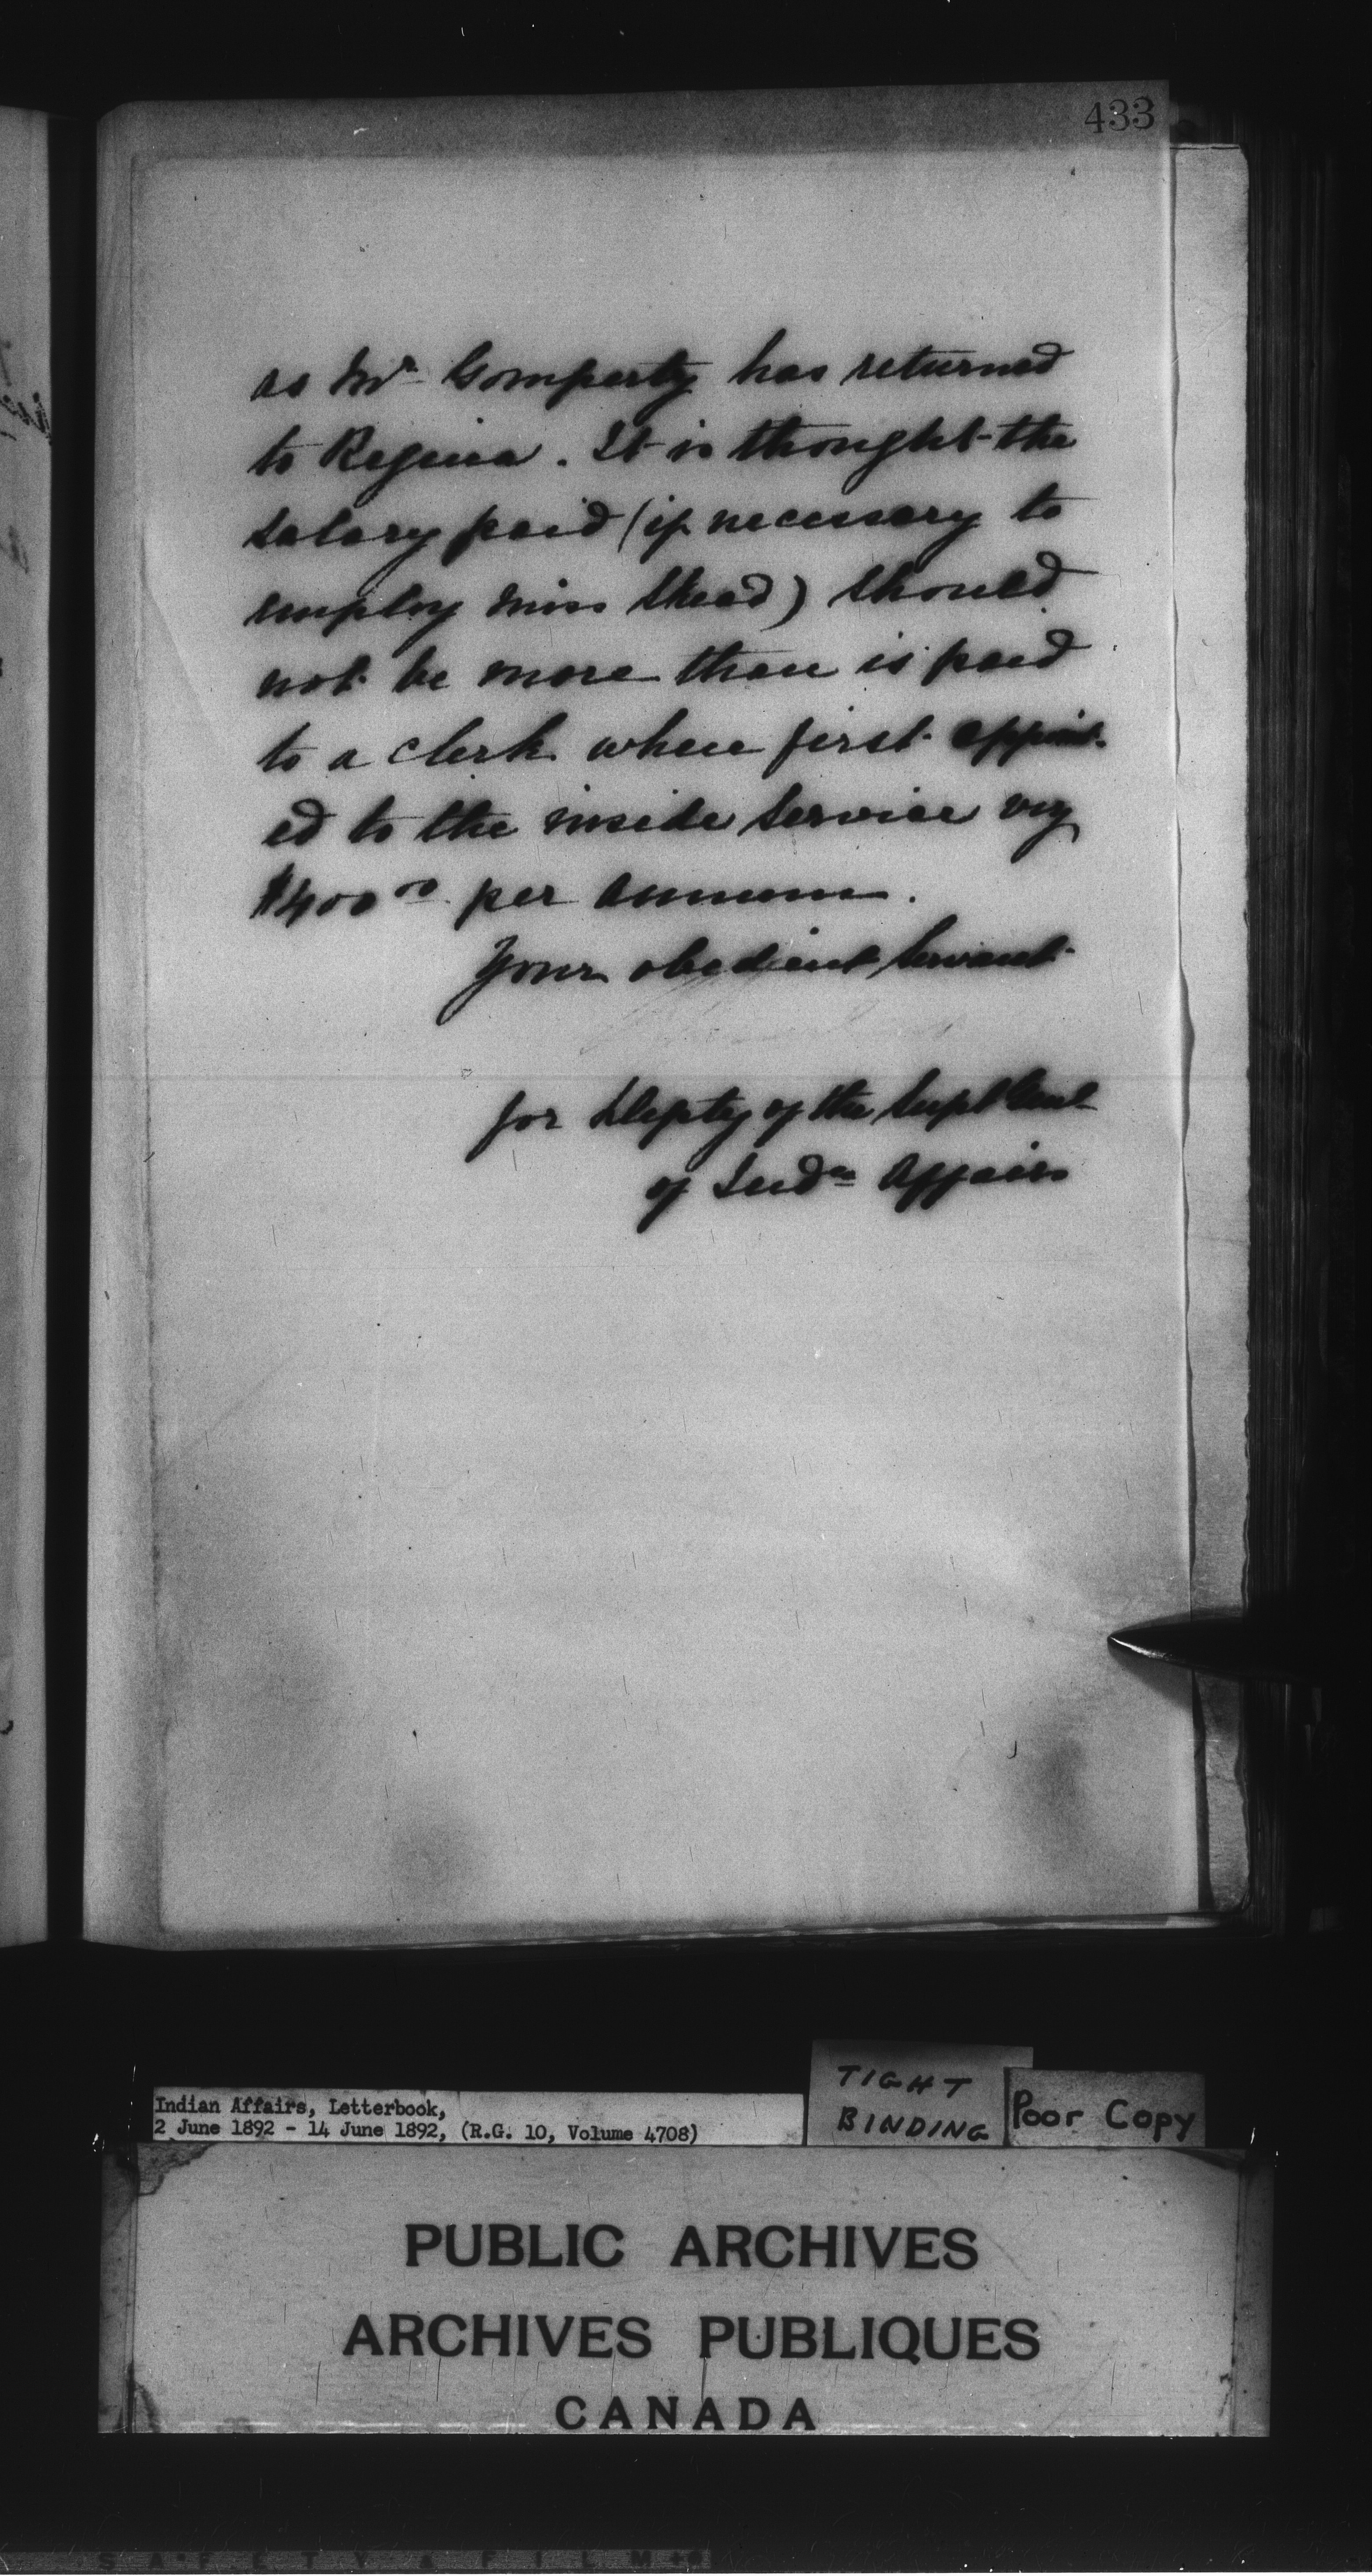 433
as Mr Gompertz has returned
to Regina. It is thought the
salary paid (if necessary to
employ Miss Shead) should
not be more than is paid
to a clerk when first appoint-
ed to the inside service viz
$400 00 per annum.
Your obedient Servant
for Depty of the Supt Genl
of Indn Affairs
Indian Affairs, Letterbook,
2 June 1892 - 14 June 1892, (R.G. 10, Volume 4708)
TIGHT
BINDING
Poor Copy
PUBLIC ARCHIVES
ARCHIVES PUBLIQUES
CANADA
SAFETY FILM